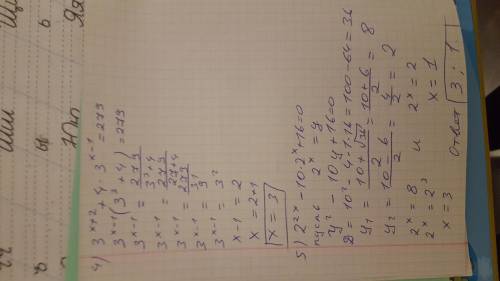 4) 3^(x+2) + 4 · 3^(x-1) = 279
3^(x-1)(3^3 + 4) = 279
3^(x-1) = 279/(3^3+4)
3^(x-1) = 279/(27+4)
3^(x-1) = 279/31
3^(x-1) = 9
3^(x-1) = 3^2
x-1 = 2
x = 2+1
x = 3
5) 2^(2x) - 10 · 2^x + 16 = 0
пусть 2^x = y
y^2 - 10y + 16 = 0
D = 10^2 - 4 · 1 · 16 = 100 - 64 = 36
y1 = (10 + √36)/2 = (10 + 6)/2 = 8
y2 = (10 - 6)/2 = 4/2 = 2
2^x = 8 и 2^x = 2
2^x = 2^3 x = 1
x = 3
Ответ 3; 1